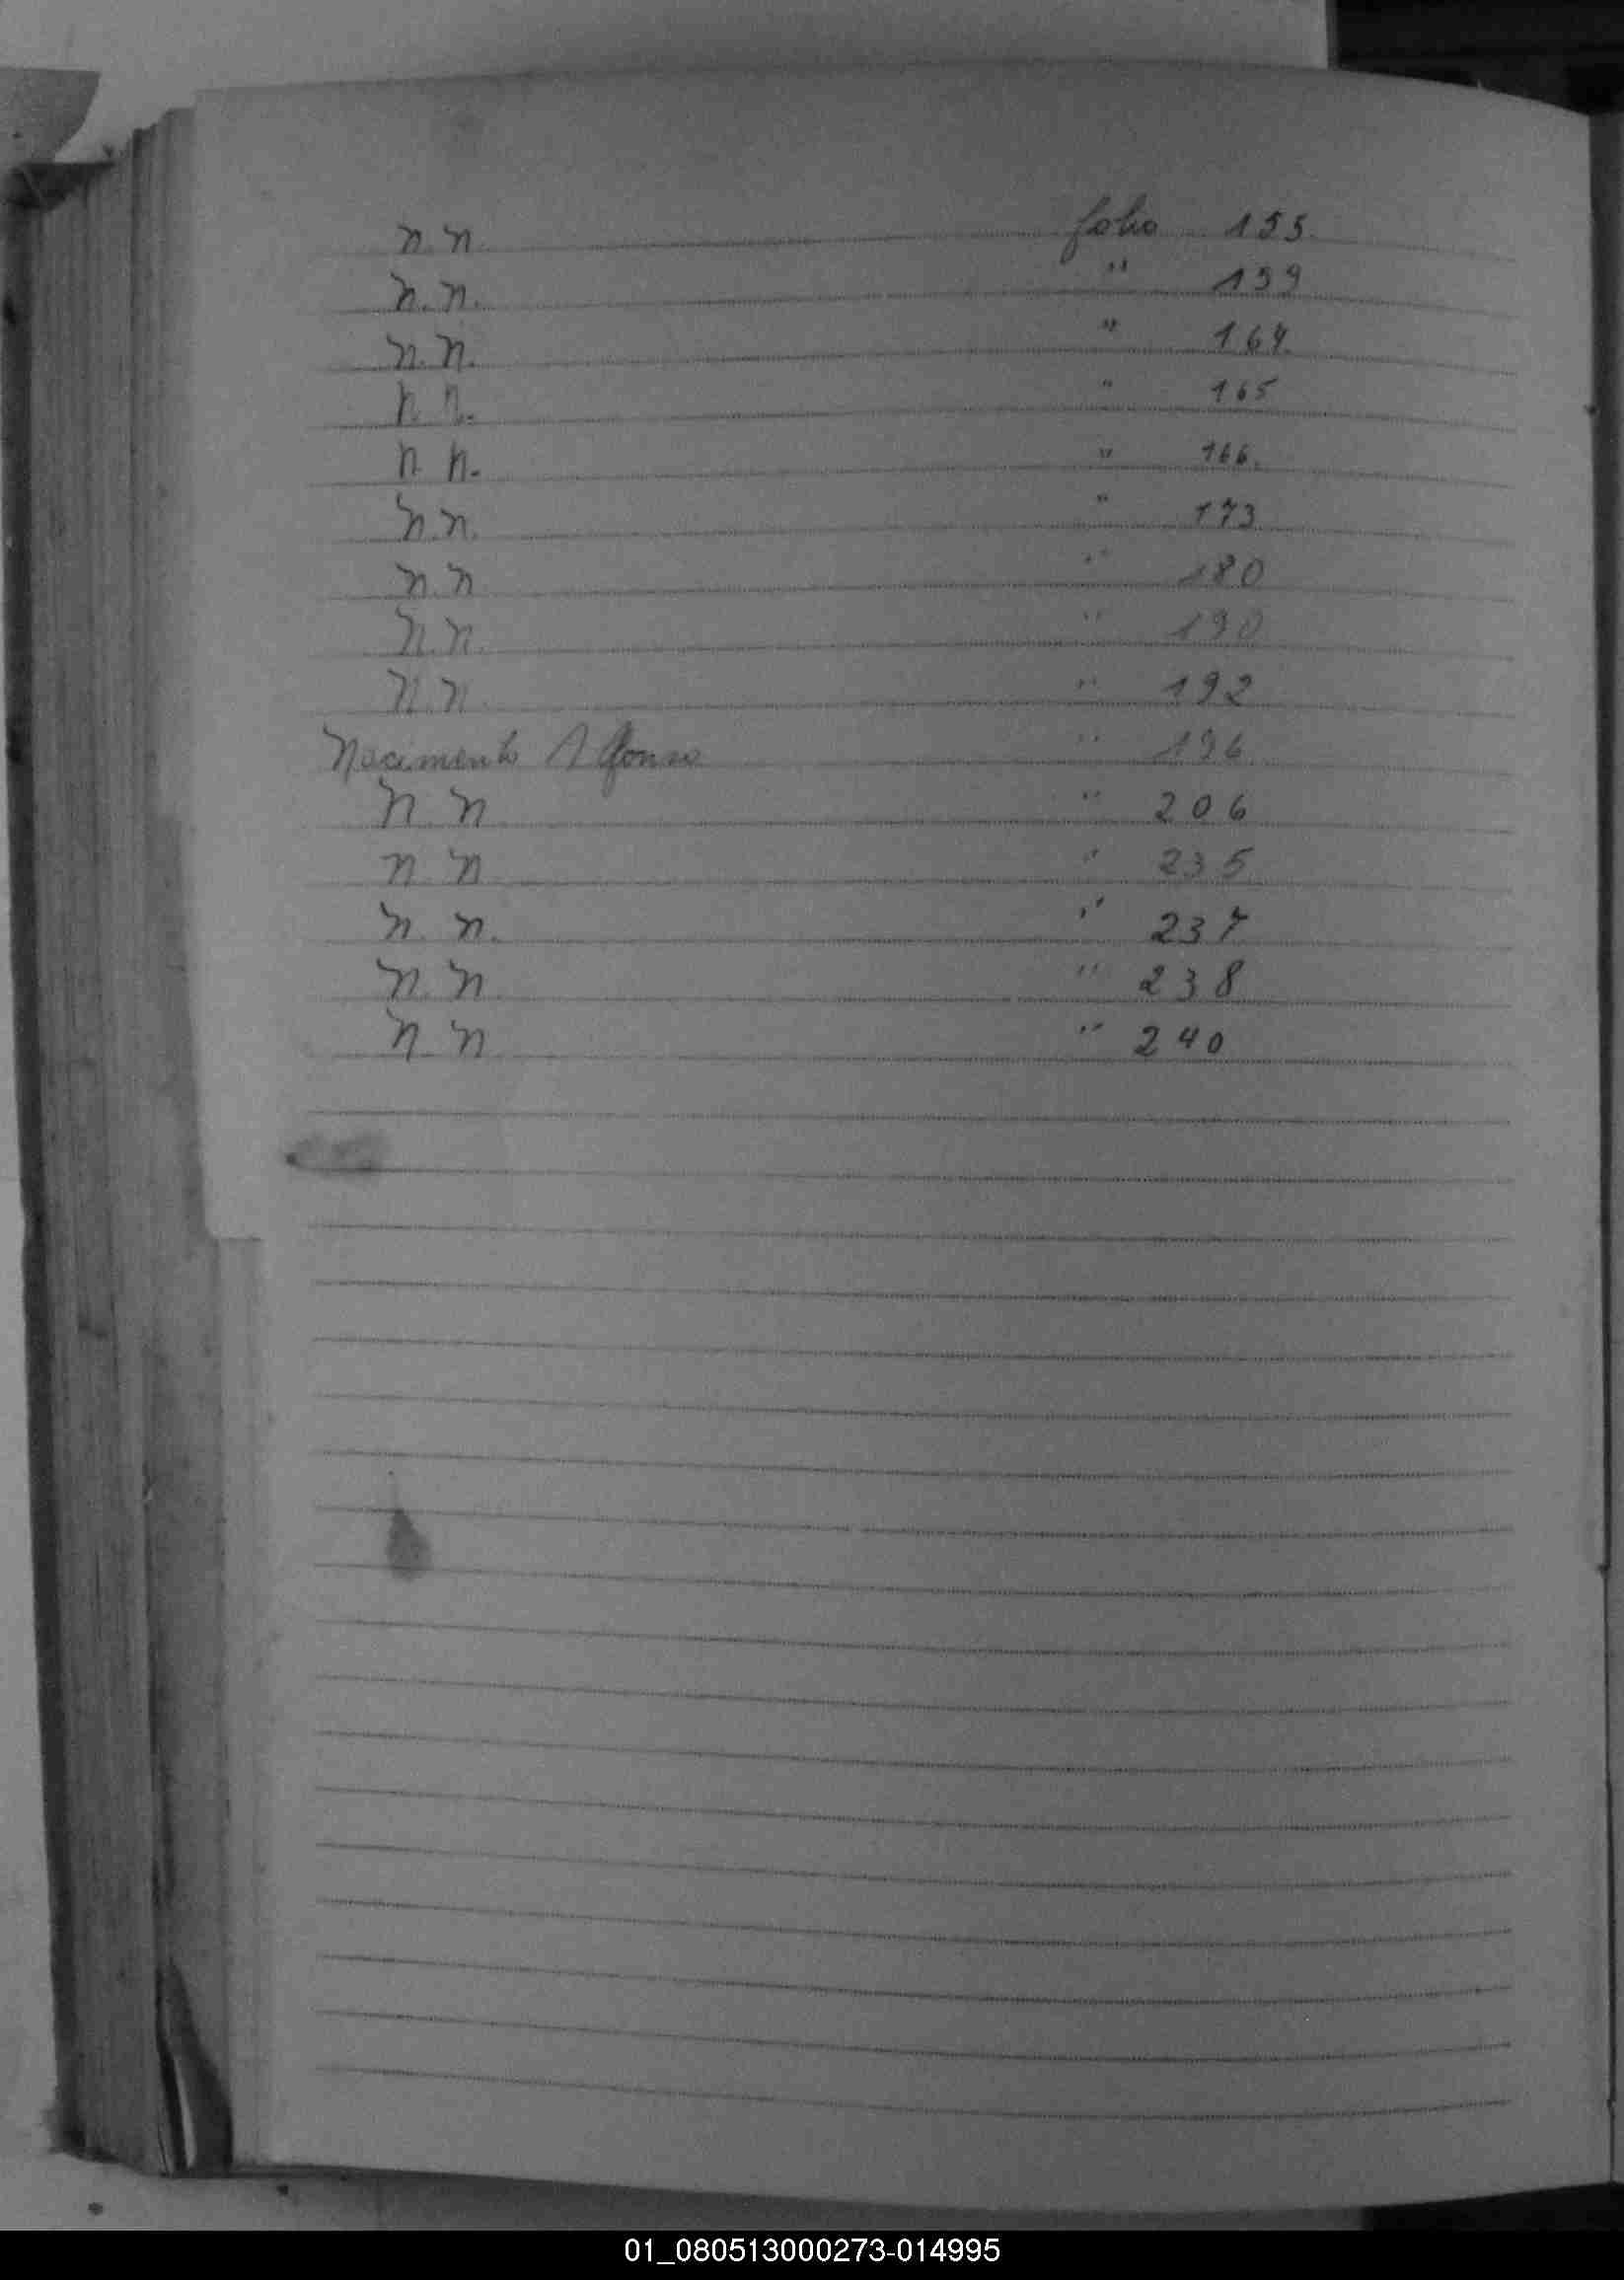 n. n. folio 155.
n. n. " 159
n. n. " 164.
n. n. " 165
n. n. " 166.
n. n. " 173
n. n " 180
n. n. " 190
n. n. " 192
Nacimento Alfonso " 196
n. n " 206
n. n " 235
n. n. " 237
n. n " 238
n. n " 240
01_080513000273-014995